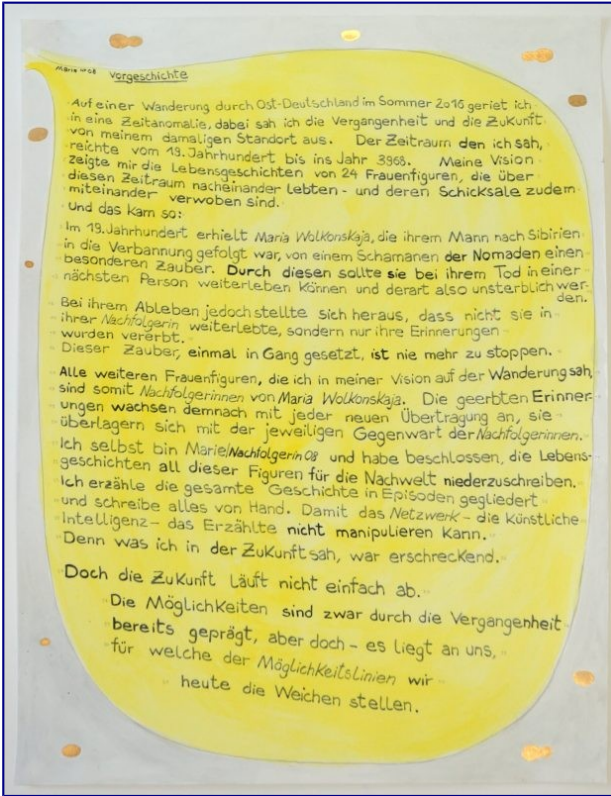 Marie №08 Vorgeschichte
Auf einer Wanderung durch Ost-Deutschland im Sommer 2016 geriet ich
in eine Zeitanomalie, dabei sah ich die Vergangenheit und die Zukunft
von meinem damaligen Standort aus. Der Zeitraum den ich sah,
reichte vom 19. Jahrhundert bis ins Jahr 3968. Meine Vision
zeigte mir die Lebensgeschichten von 24 Frauenfiguren, die über
diesen Zeitraum nacheinander lebten - und deren Schicksale zudem
miteinander verwoben sind.
Und das kam so:
Im 19. Jahrhundert erhielt Maria Wolkonskaja, die ihrem Mann nach Sibirien
in die Verbannung gefolgt war, von einem Schamanen der Nomaden einen
besonderen Zauber. Durch diesen sollte sie bei ihrem Tod in einer
nächsten Person weiterleben können und derart also unsterblich wer-
den.
Bei ihrem Ableben jedoch stellte sich heraus, dass nicht sie in
ihrer Nachfolgerin weiterlebte, sondern nur ihre Erinnerungen
wurden vererbt.
Dieser Zauber, einmal in Gang gesetzt, ist nie mehr zu stoppen.
Alle weiteren Frauenfiguren, die ich in meiner Vision auf der Wanderung sah,
sind somit Nachfolgerinnen von Maria Wolkonskaja. Die geerbten Erinner-
ungen wachsen demnach mit jeder neuen Übertragung an, sie
überlagern sich mit der jeweiligen Gegenwart der Nachfolgerinnen.
Ich selbst bin Marie/Nachfolgerin 08 und habe beschlossen, die Lebens-
geschichten all dieser Figuren für die Nachwelt niederzuschreiben.
Ich erzähle die gesamte Geschichte in Episoden gegliedert
und schreibe alles von Hand. Damit das Netzwerk - die Künstliche
Intelligenz - das Erzählte nicht manipulieren kann.
Denn was ich in der Zukunft sah, war erschreckend.
Doch die Zukunft läuft nicht einfach ab.
Die Möglichkeiten sind zwar durch die Vergangenheit
bereits geprägt, aber doch - es liegt an uns,
für welche der Möglichkeitslinien wir
heute die Weichen stellen.